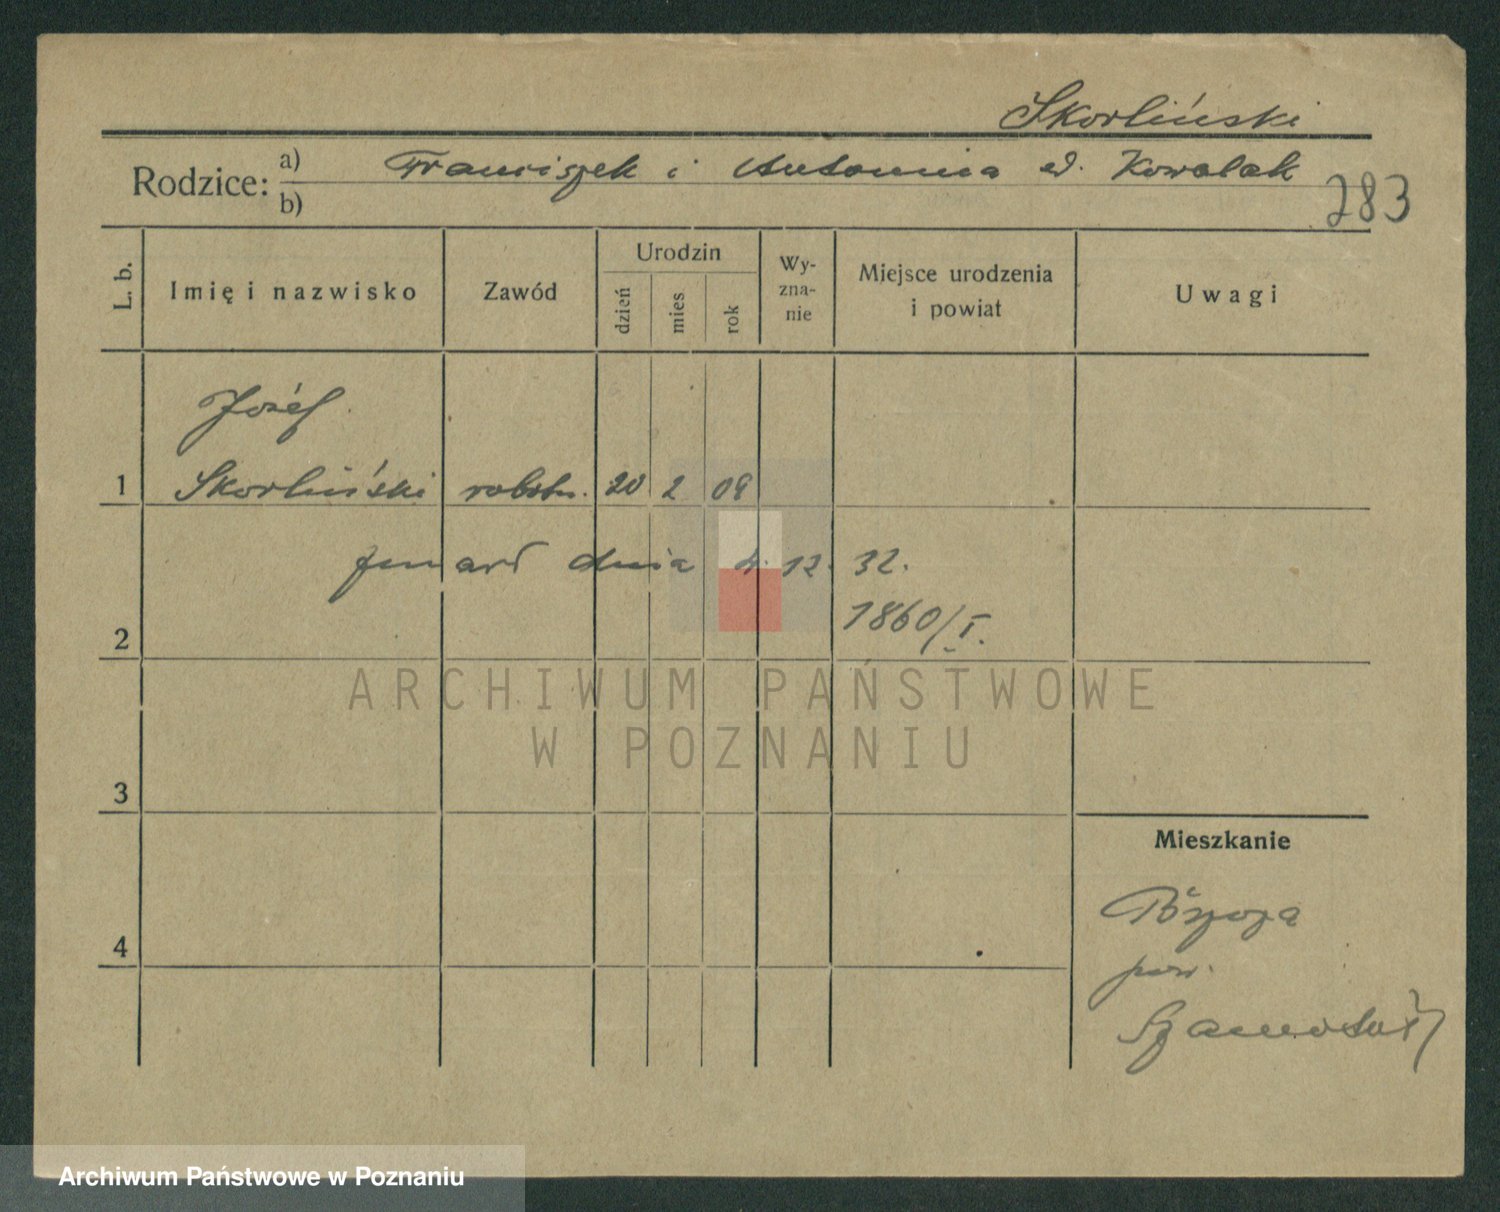 Skorliński
Rodzice: a) Franciszek i Antonina z d. Kowalak
b)
283
L. b.
Imię i nazwisko
Zawód
Urodzin
dzień
mies
rok
Wy-
zna-
nie
Miejsce urodzenia
i powiat
Uwagi
Józef
1 Skorliński robotn. 20 2 09
zmarł dnia 4. 12. 32.
1860/I.
2
ARCHIWUM PAŃSTWOWE
W POZNANIU
3
Mieszkanie
4
pow.
Szamotuły
Archiwum Państwowe w Poznaniu